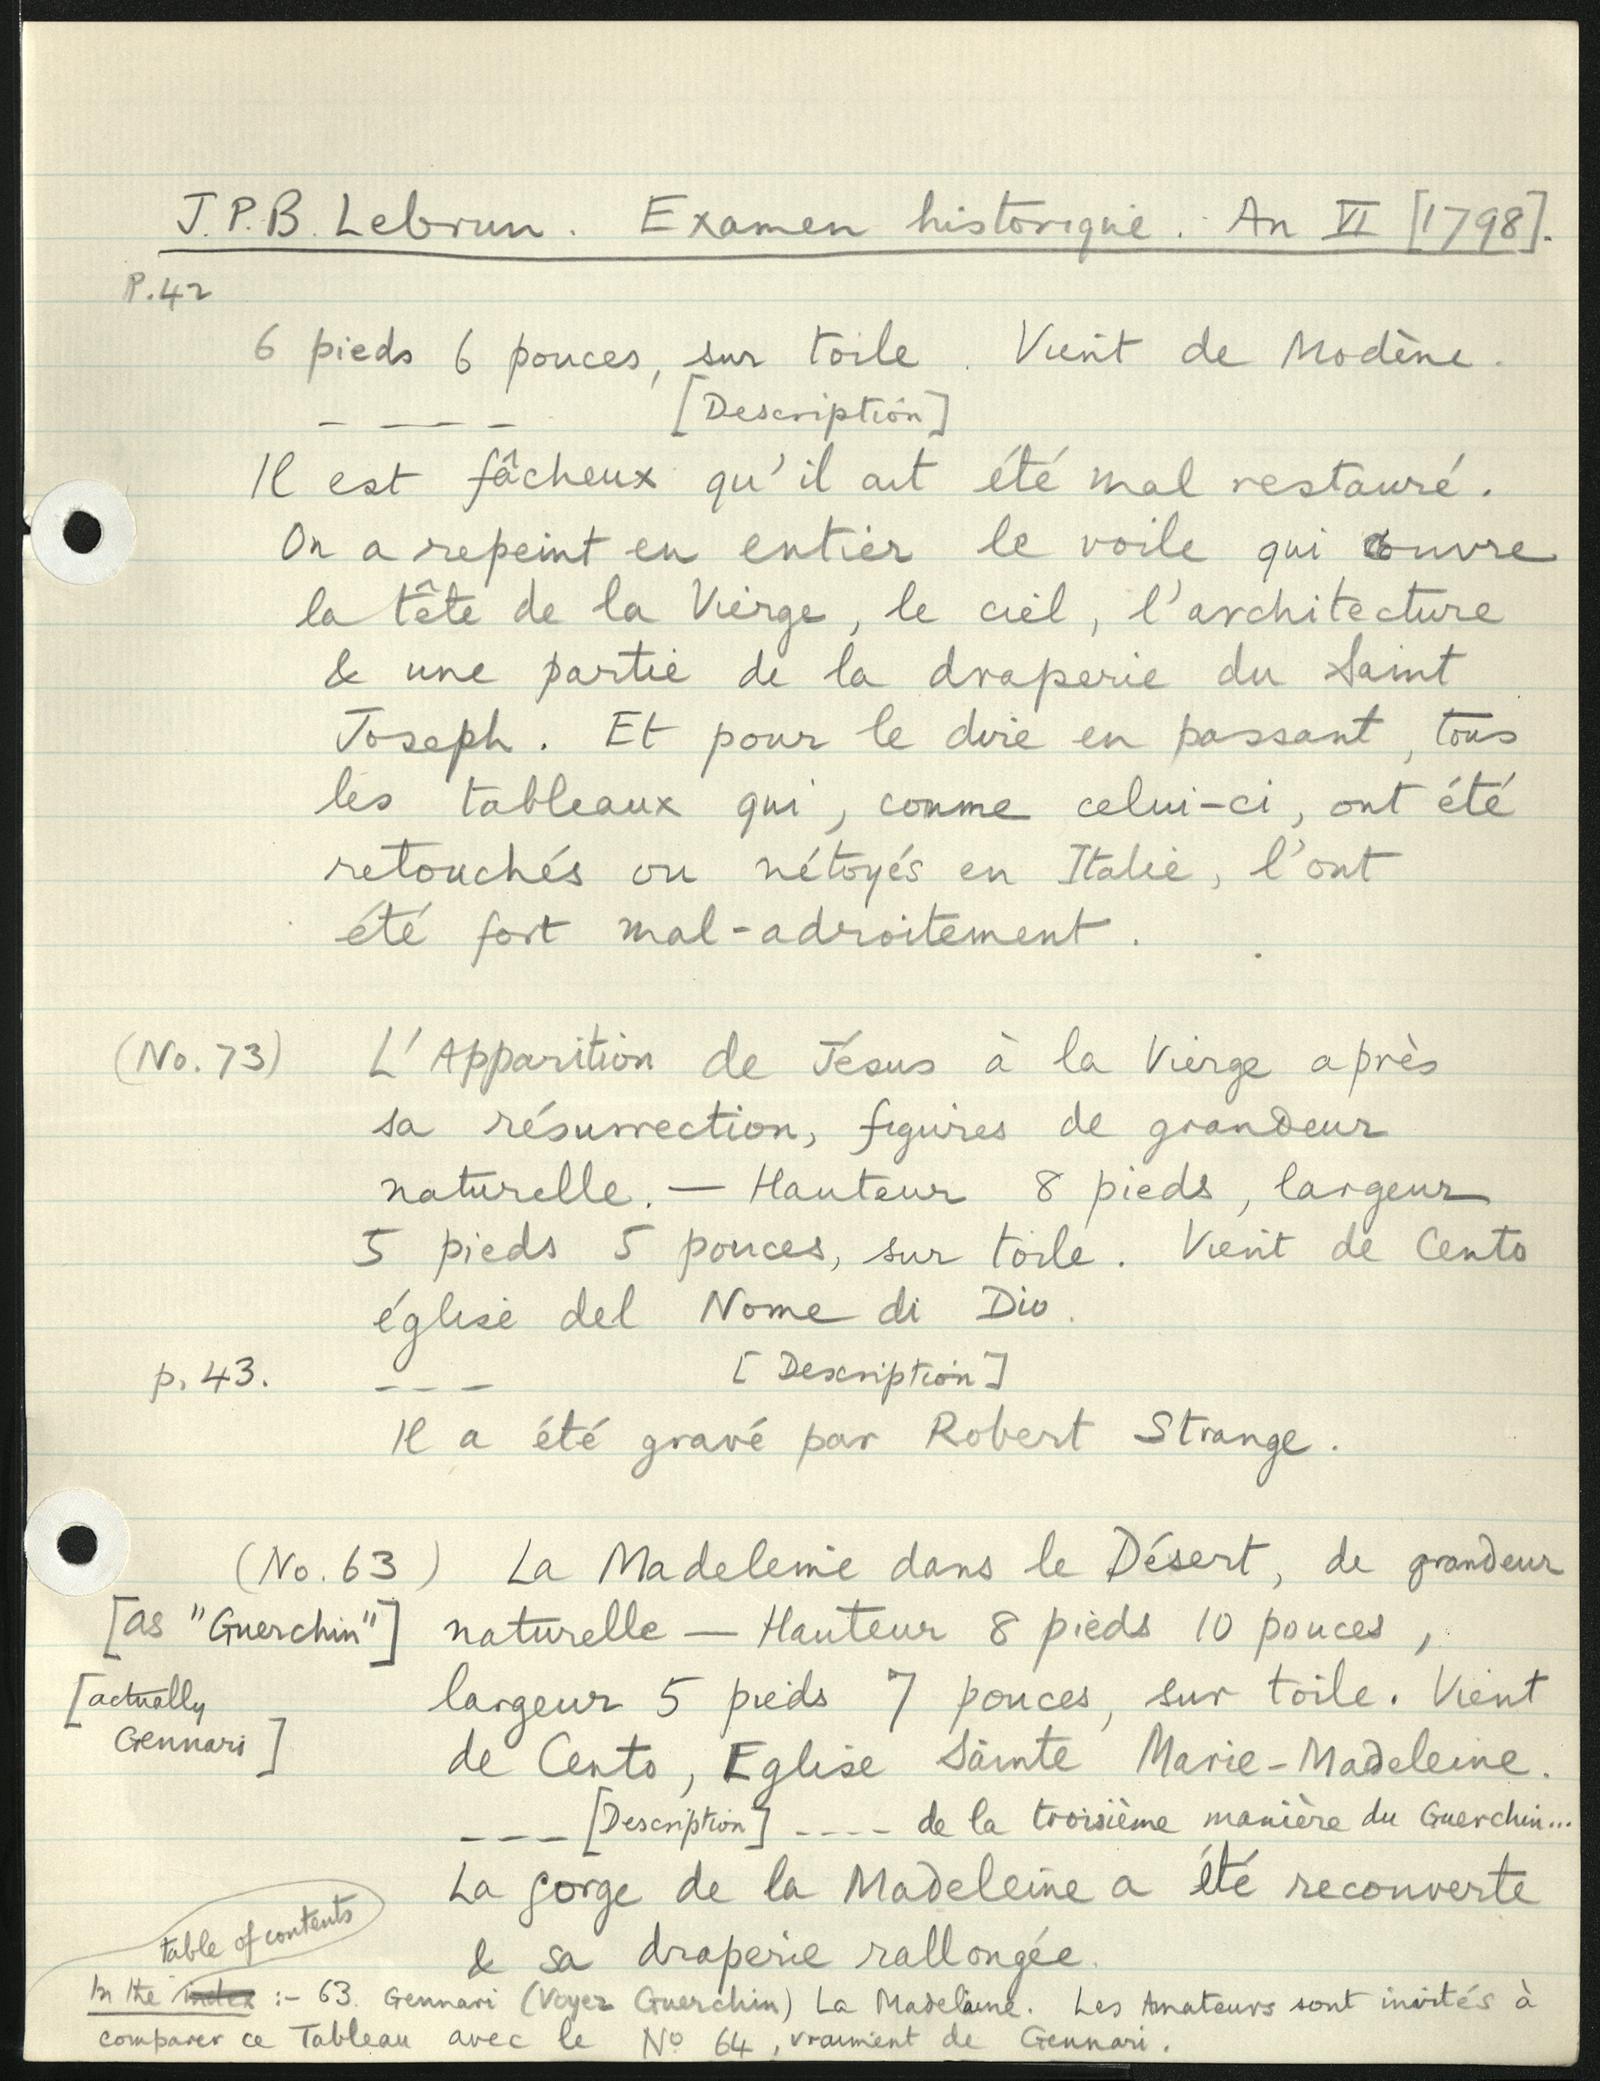 J.P.B. Lebrun. Examen historique. An VI [1798].
P.42
6 pieds 6 pouces, sur toile. Vient de Modène.
– — — – [Description]
Il est fâcheux qu'il ait été mal restauré.
On a repeint en entier le voile qui couvre
la tête de la Vierge, le ciel, l'architecture
& une partie de la draperie du Saint
Joseph. Et pour le dire en passant, tous
les tableaux qui, comme celui-ci, ont été
retouchés ou nétoyés en Italie, l'ont
été fort mal-adroitement.
(No. 73) L'Apparition de Jésus à la Vierge après
sa résurrection, figures de grandeur
naturelle. — Hauteur 8 pieds, largeur
5 pieds 5 pouces, sur toile. Vient de Cento
église del Nome di Dio.
p. 43. – – – [Description]
Il a été gravé par Robert Strange.
(No. 63) La Madeleine dans le Désert, de grandeur
[as "Guerchin"] naturelle — Hauteur 8 pieds 10 pouces,
[actually largeur 5 pieds 7 pouces, sur toile. Vient
Gennari] de Cento, Eglise Sainte Marie-Madeleine.
– – – [Description] – – – – de la troisième manière du Guerchin...
La gorge de la Madeleine a été recouverte
& sa draperie rallongée.
table of contents
In the index :- 63. Gennari (Voyez Guerchin) La Madelaine. Les Amateurs sont invités à
comparer ce Tableau avec le No 64, vraiment de Gennari.